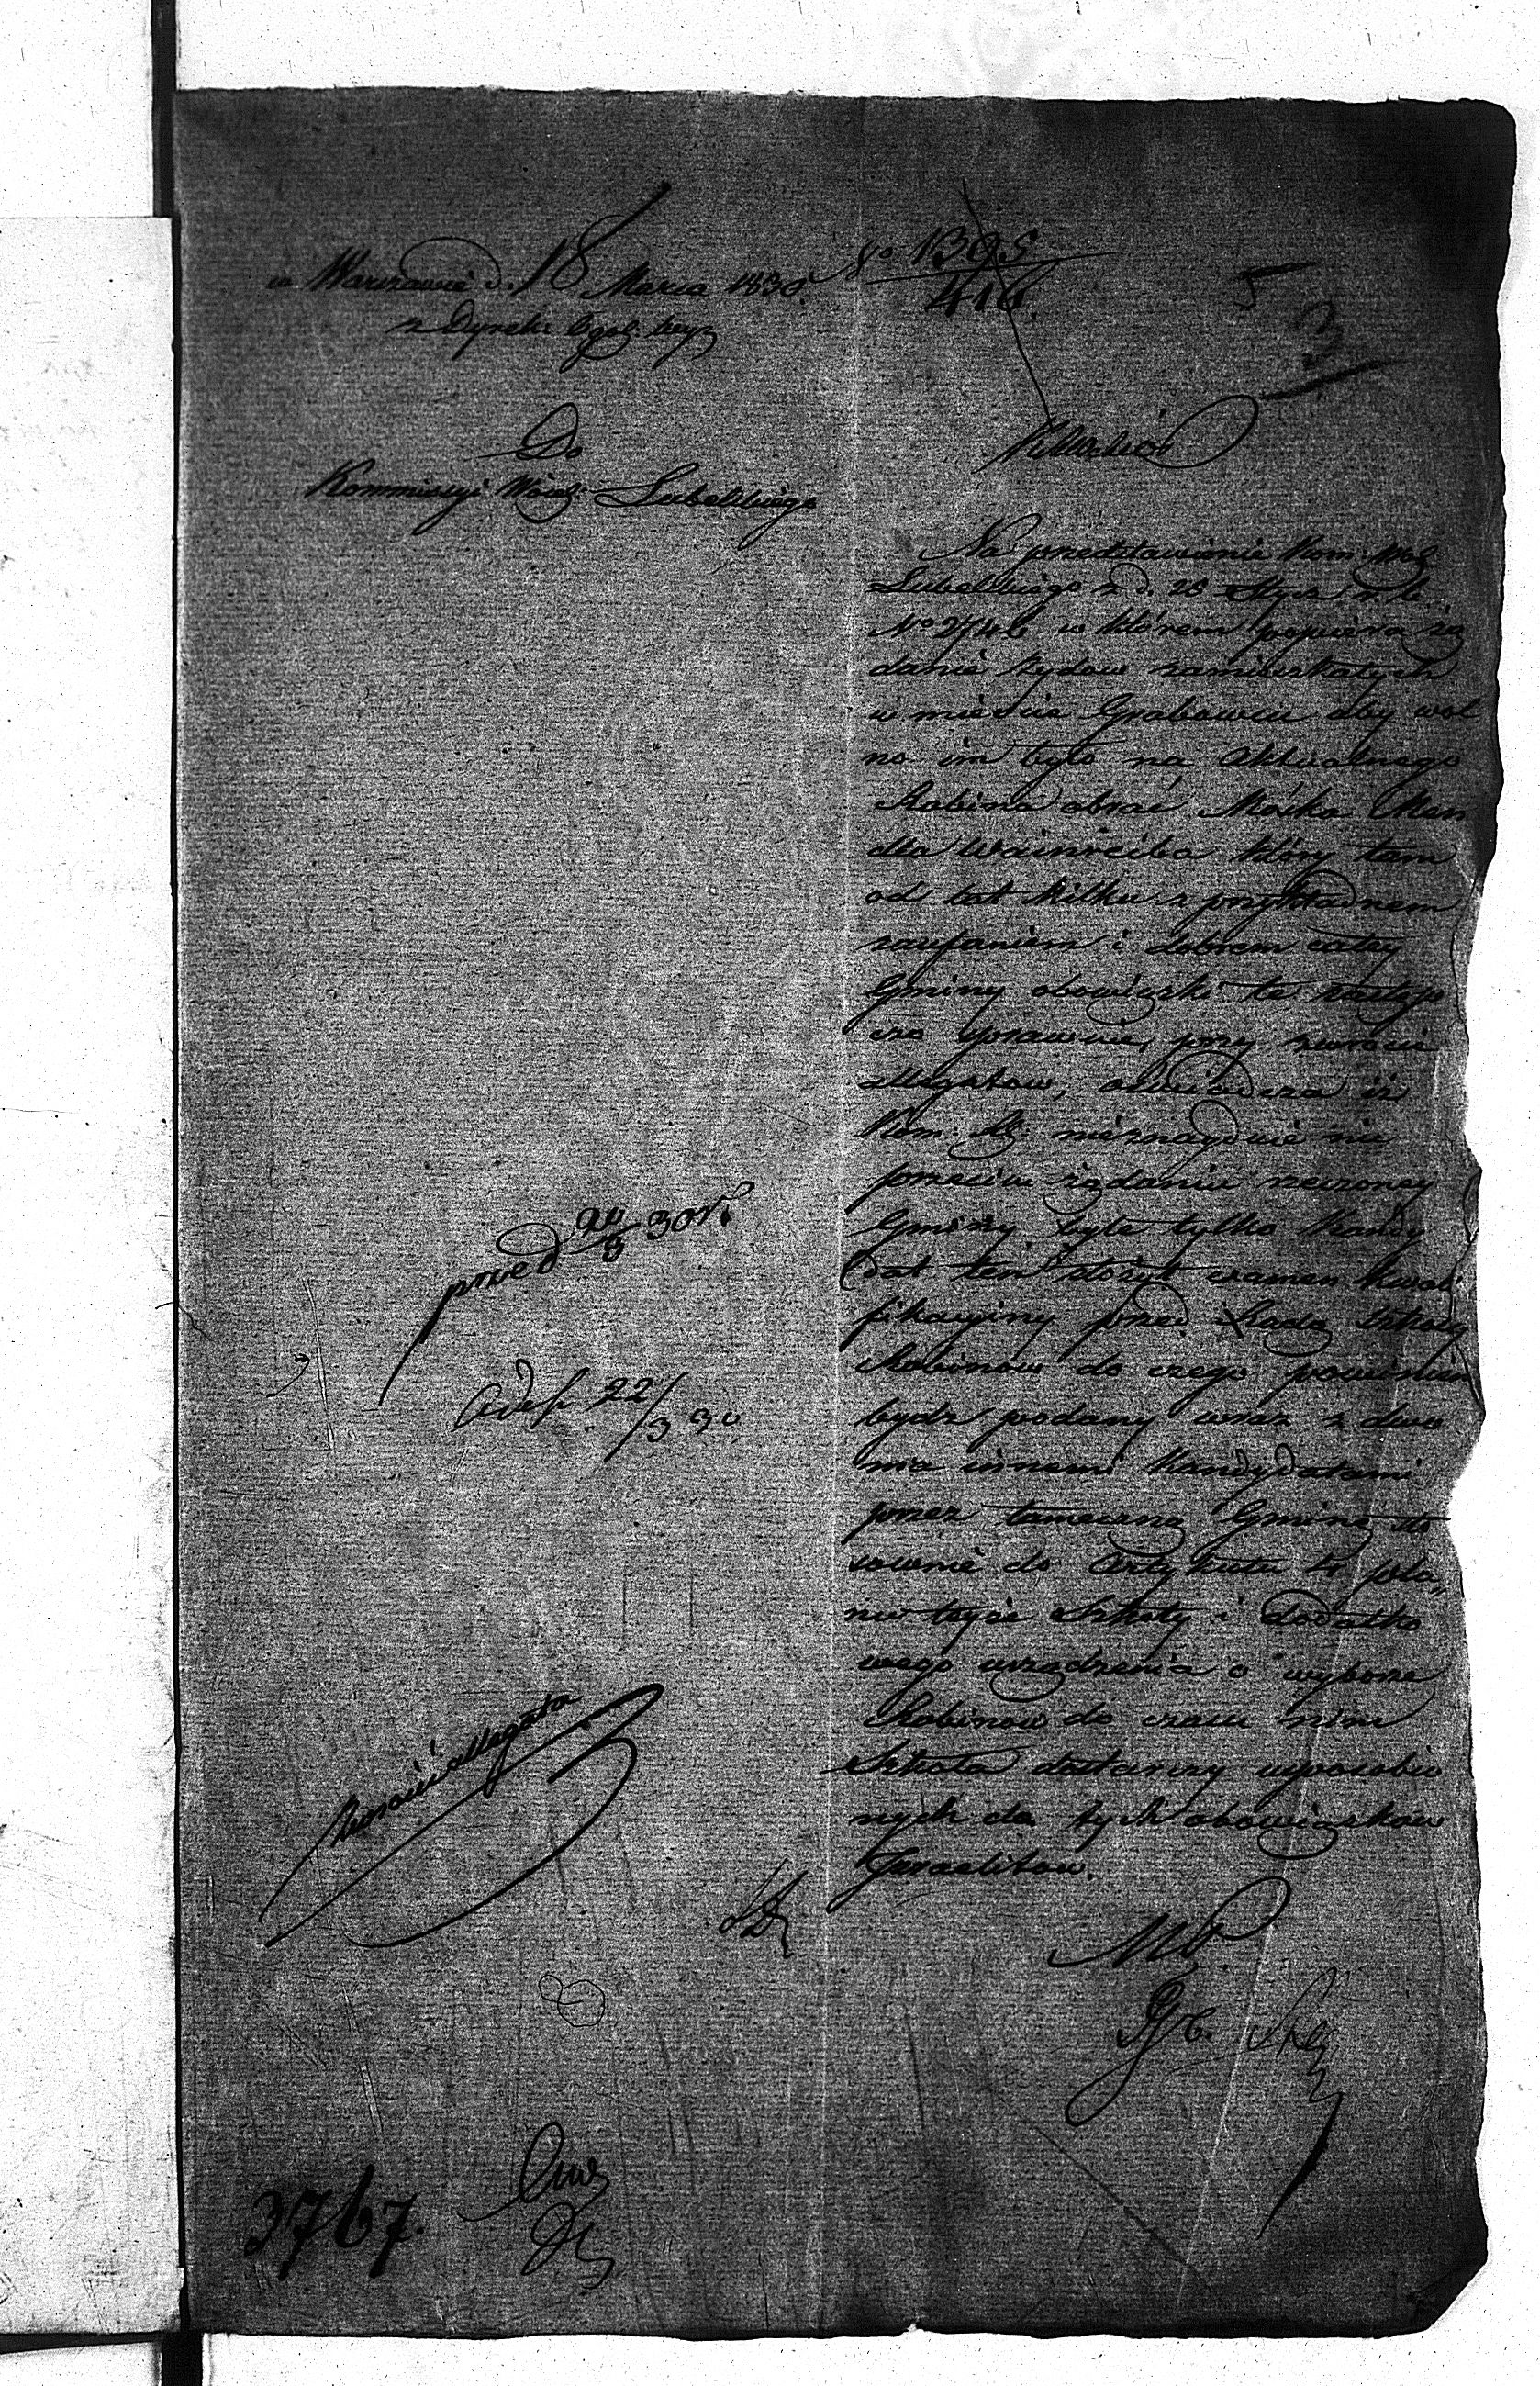 w Warszawie d. 18 Marca 1830.
No 1395
416.
5
3
z Dyrek: Ogol:
Do
Kommissyi Wdz: Lubelskiego
Na przedstawienie Kom: Wdz
Lubelskiego z d. 28 Stycz. r. b.
No 2746 w którem popiera żą
danie żydow zamieszkałych
w mieście Grabowcu aby wol
no im było na aktualnego
Rabina obrać Mośka Men
dla Wainreiba który tam
od lat kilku z przykładnem
zaufaniem i dobrem całey
Gminy obowiązki te zastęp
czo sprawuie, przy zwrocie
allegatow, oświadcza iż
Kom: Rz: nieznayduie nic
przeciw żądaniu rzeczoney
Gminy byle tylko Kandy
dat ten złożył examen kwali
fikacyiny przed Radą Szkoły
Rabinów do czego powinien
bydz podany wraz z dwo
ma innemi Kandydatami
przez tameczną Gminę sto
sownie do Artykułu planu
teyże Szkoły i dodatko
wego urządzenia o wyborze
Rabinow do czasu nim
Szkoła dostarczy usposobio
nych do tych obowiązkow
Izraelitow.
przed 20/3 30 r.
22/3 30
Zwrócić allegata
3767.